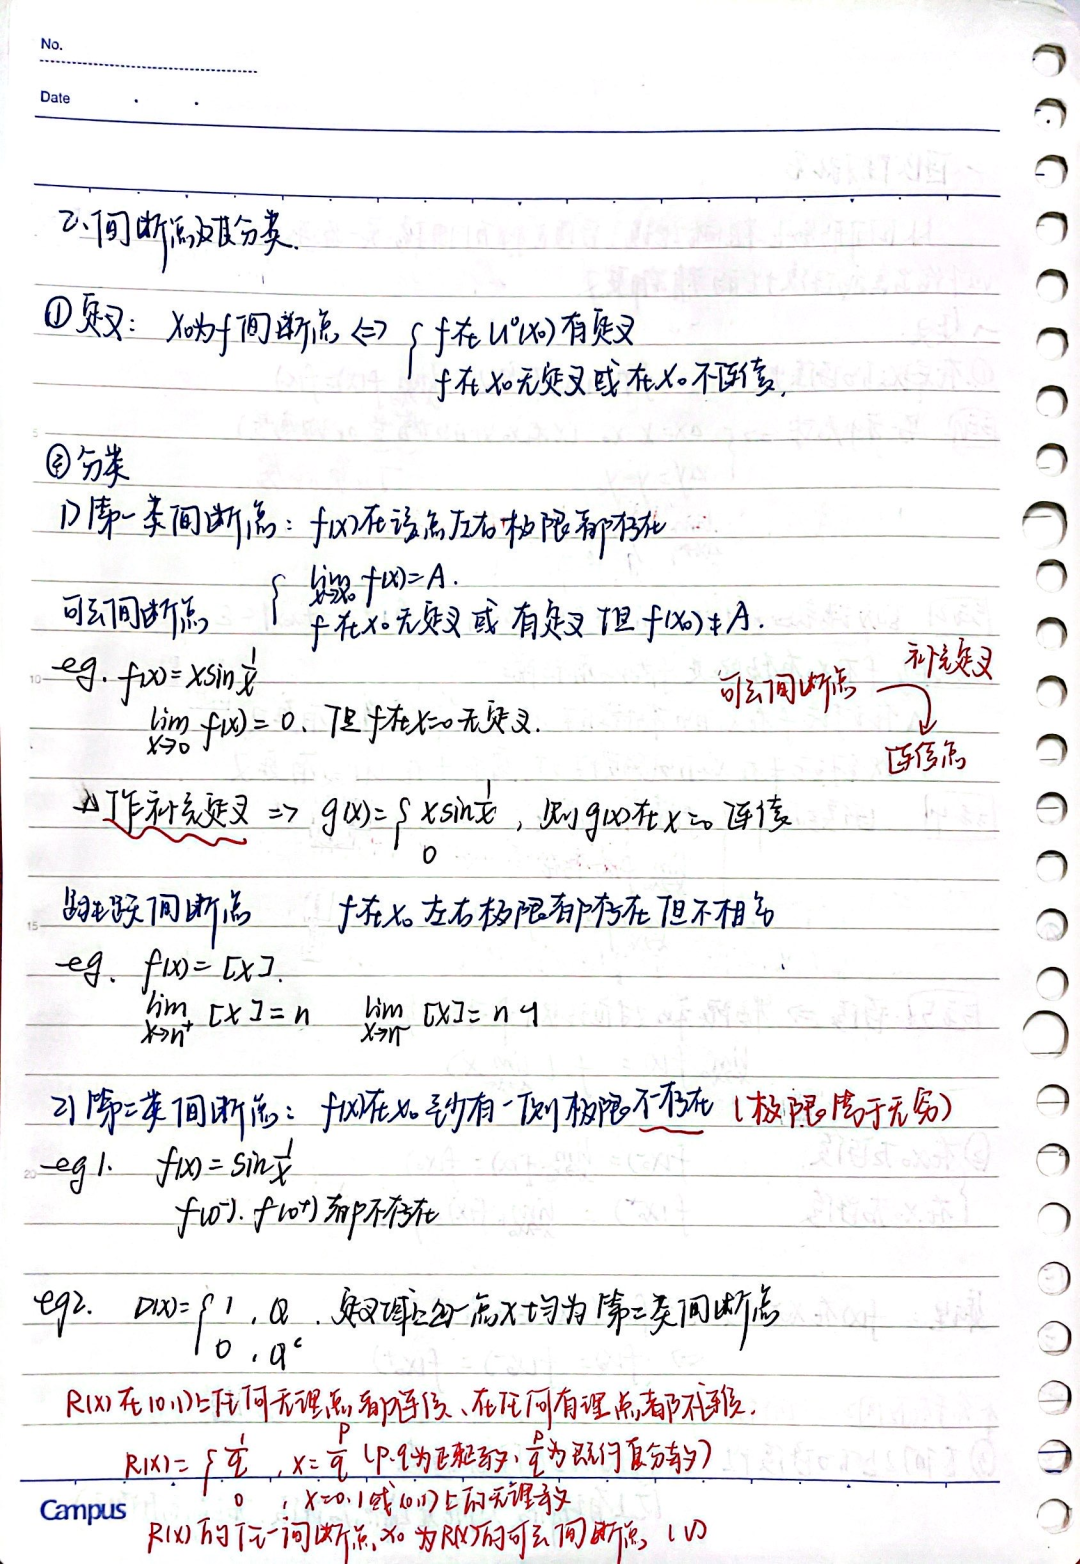 No.
Date
2、间断点及其分类.
① 定义: x₀为f间断点 ⇔ { f在U°(x₀)有定义
f在x₀无定义或在x₀不连续.
② 分类
1) 第一类间断点: f(x)在该点左右极限都存在
可去间断点 { lim x→x₀ f(x)=A.
f在x₀无定义或 有定义但f(x₀)≠A.
eg. f(x)=xsin 1/x
lim x→0 f(x)=0、但f在x=0无定义.
可去间断点 补充定义 → 连续点
作补充定义 => g(x)={ xsin 1/x , 则g(x)在x=0连续
0
跳跃间断点 f在x₀左右极限都存在但不相等
eg. f(x)=[x].
lim x→n⁺ [x]=n lim x→n⁻ [x]=n-1
2) 第二类间断点: f(x)在x₀至少有一侧极限不存在 (极限属于无穷)
eg1. f(x)=sin 1/x
f(0⁻). f(0⁺)都不存在
eg2. D(x)={ 1 , Q . 定义域上每一点x均为第二类间断点
0 , Qᶜ
R(x)在(0,1)上任何无理点都连续、在任何有理点都不连续.
R(x)={ 1/q , x=p/q (p.q为正整数、p/q为既约真分数)
0 , x=0.1或(0,1)上的无理数
R(x)的任一间断点x₀为R(x)的可去间断点 (√)
5
10
15
20
Campus